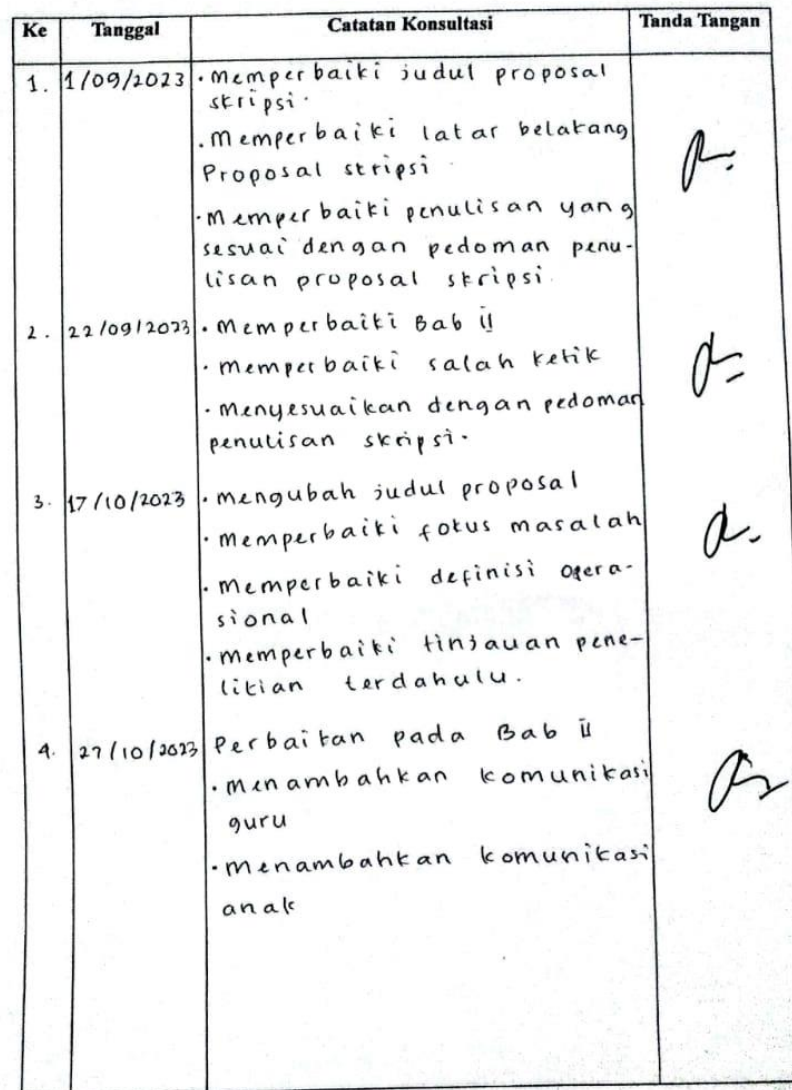 Ke Tanggal Catatan Konsultasi Tanda Tangan
1. 1/09/2023 · Memperbaiki judul proposal
skripsi.
· Memperbaiki latar belakang
Proposal skripsi
· Memperbaiki penulisan yang
sesuai dengan pedoman penu-
lisan proposal skripsi.
2. 22/09/2023 · Memperbaiki Bab II
· Memperbaiki salah ketik
· Menyesuaikan dengan pedoman
penulisan skripsi.
3. 17/10/2023 · Mengubah judul proposal
· Memperbaiki fokus masalah
· Memperbaiki definisi opera-
sional
· Memperbaiki tinjauan pene-
litian terdahulu.
4. 27/10/2023 Perbaikan pada Bab II
· Menambahkan komunikasi
guru
· Menambahkan komunikasi
anak